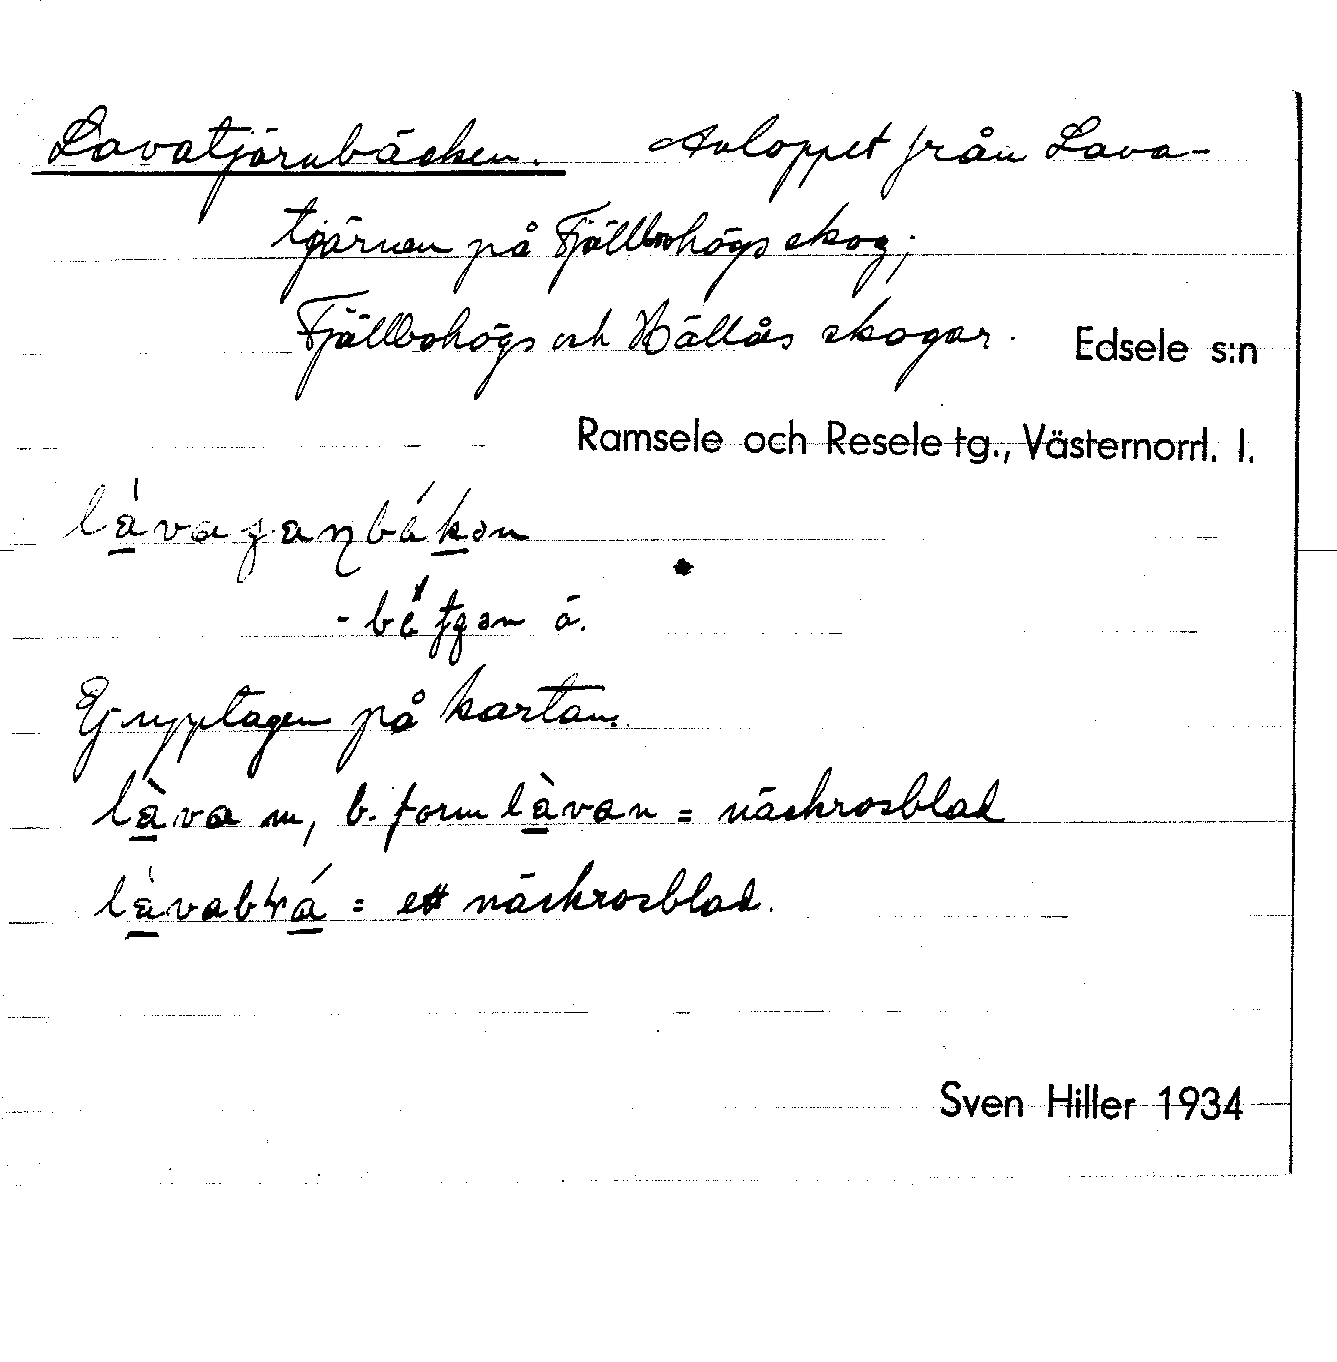 Lavatjärnbäcken. Avloppet från Lava-
tjärnen på Fjällbohögs skog;
Fjällbohögs och Hällås skogar.
Edsele s:n
Ramsele och Resele tg., Västernorrl. l.
- ä.
Ej upptagen på kartan.
làva m, b. form làvan = näckrosblad
= ett näckrosblad.
Sven Hiller 1934